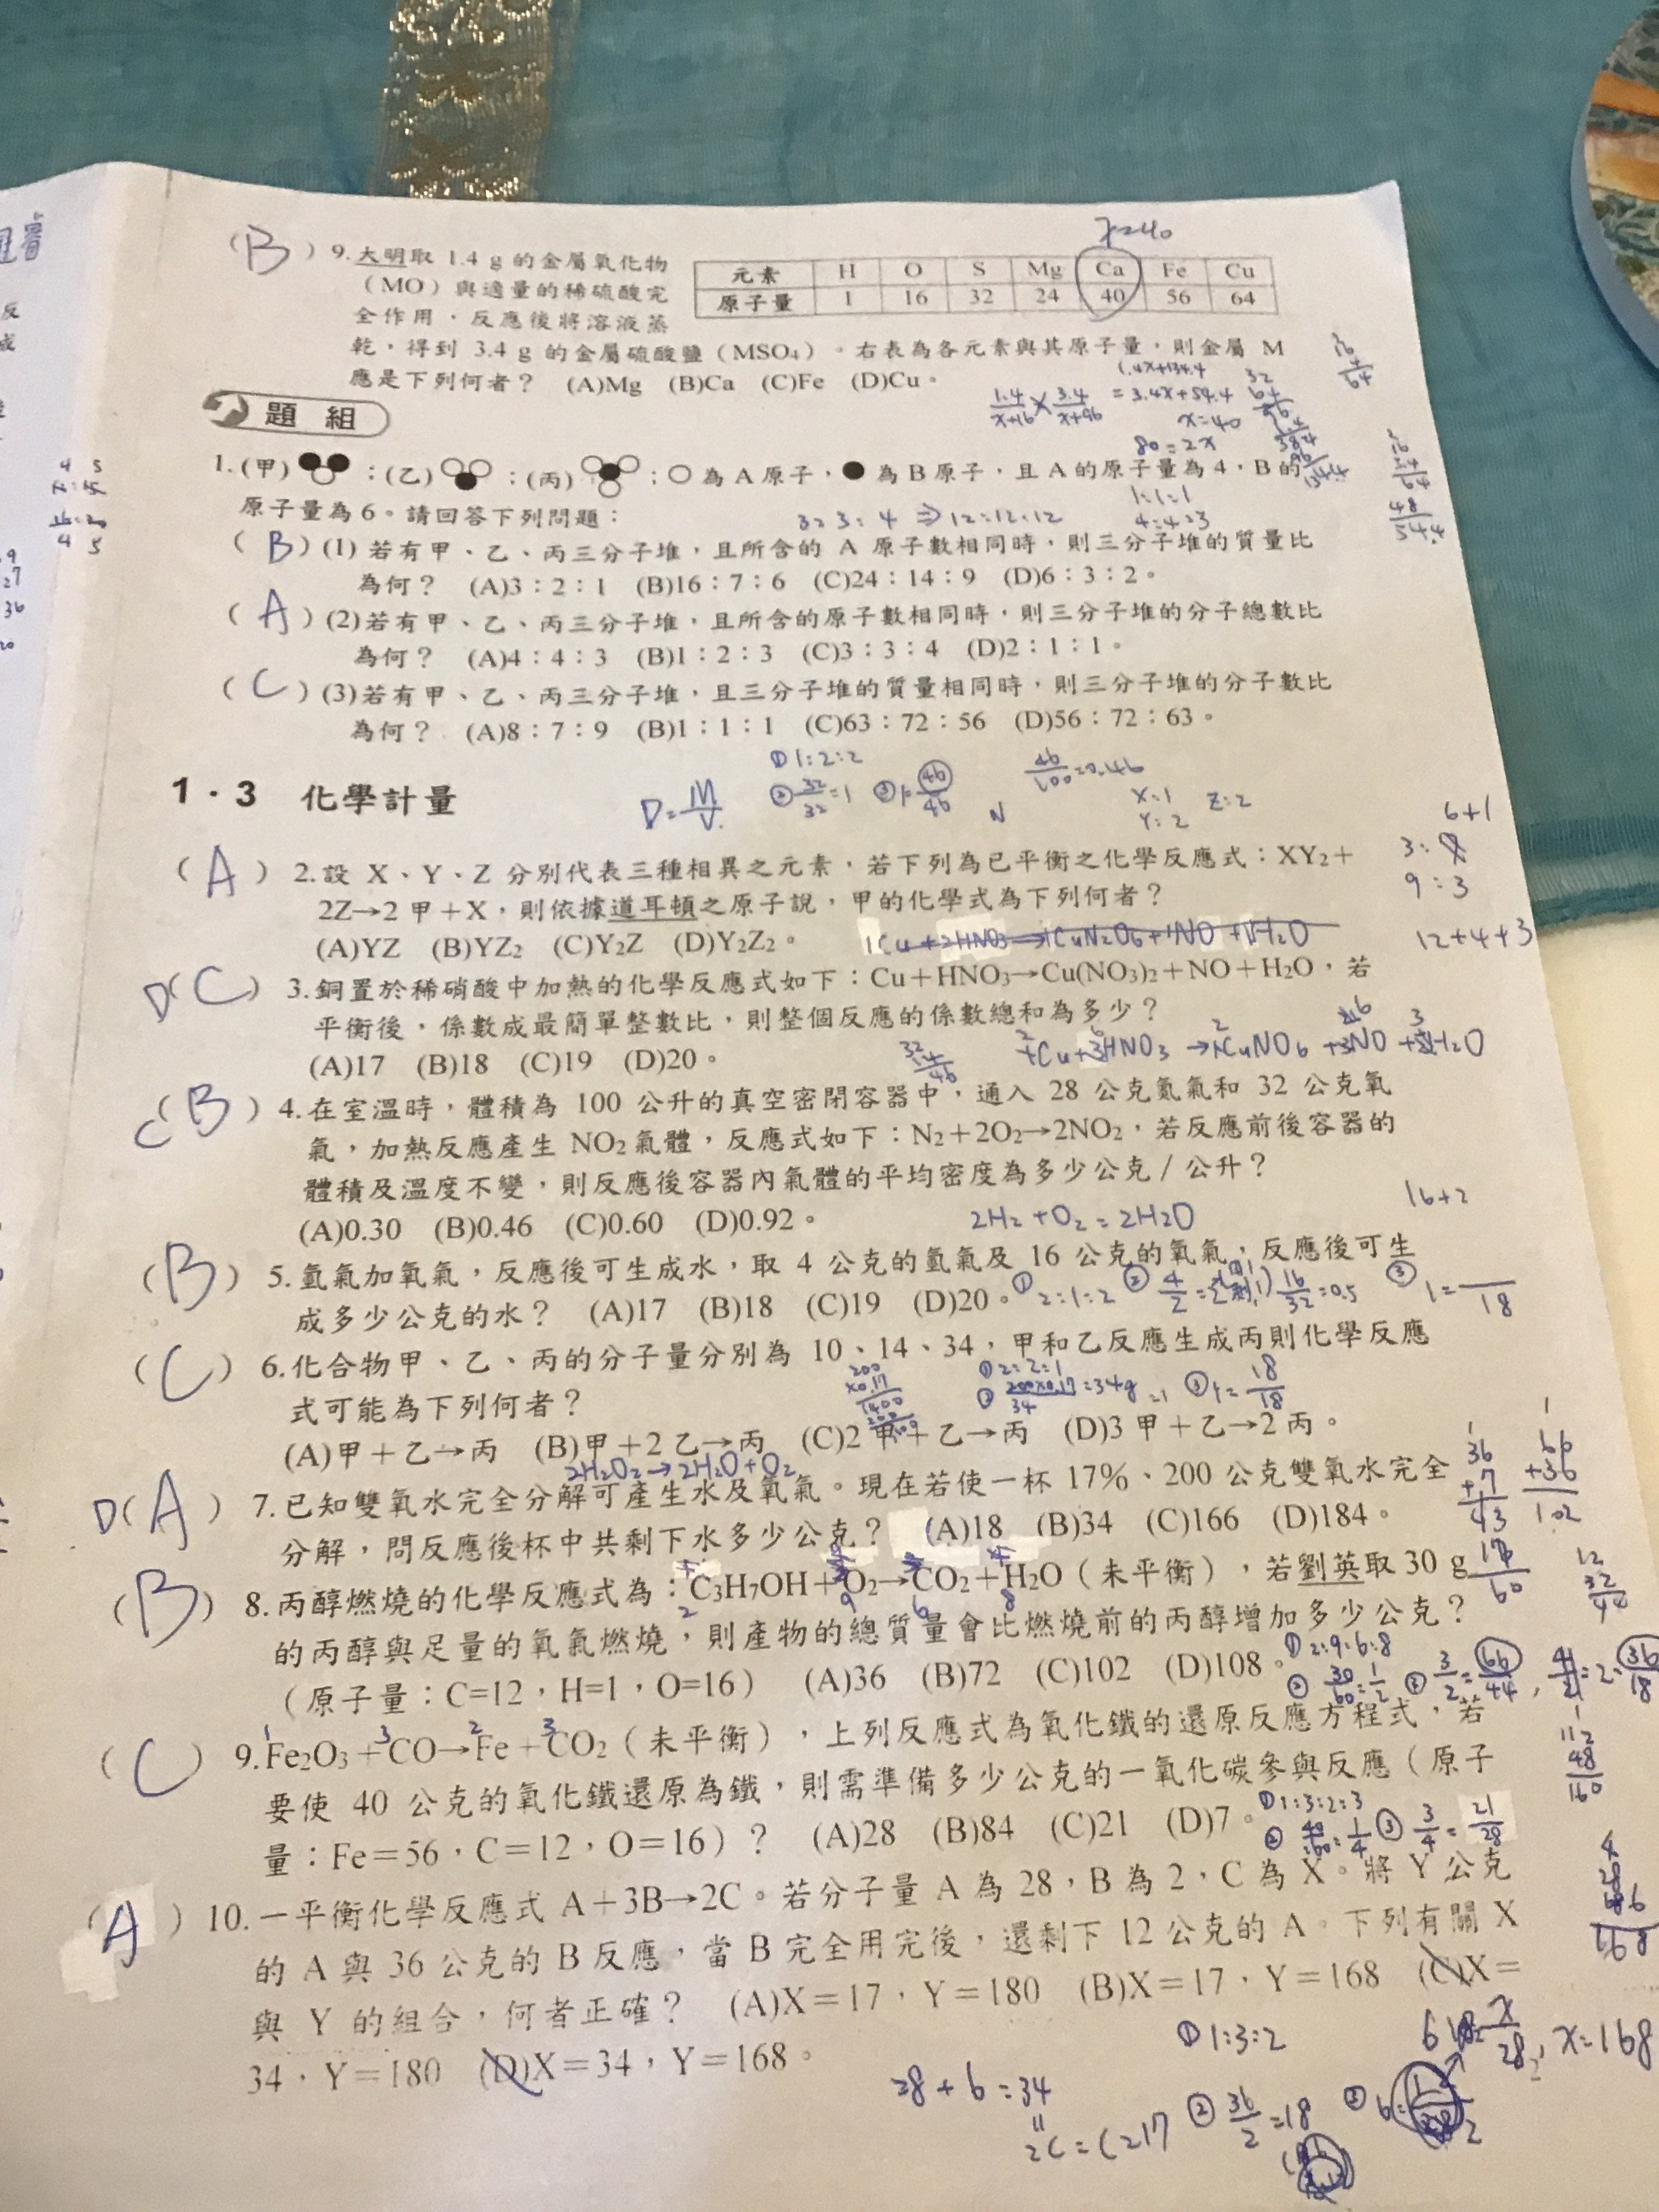 (B) 9.大明取 1.4 g 的金屬氧化物
（MO）與適量的稀硫酸完
全作用，反應後將溶液蒸
乾，得到 3.4 g 的金屬硫酸鹽（MSO₄）。右表為各元素與其原子量，則金屬 M
應是下列何者？ (A)Mg (B)Ca (C)Fe (D)Cu。
元素 H O S Mg Ca Fe Cu
原子量 1 16 32 24 40 56 64
1.4/x+16 × 3.4/x+96
= 3.4x+54.4
x=40
80=2x
題組
1.(甲) ；(乙) ；(丙) ；○為 A 原子，●為 B 原子，且 A 的原子量為 4，B 的
原子量為 6。請回答下列問題：
3:3:4 ⇒ 12:12:12
1:1:1
4:4:3
(B) (1) 若有甲、乙、丙三分子堆，且所含的 A 原子數相同時，則三分子堆的質量比
為何？ (A)3：2：1 (B)16：7：6 (C)24：14：9 (D)6：3：2。
(A) (2)若有甲、乙、丙三分子堆，且所含的原子數相同時，則三分子堆的分子總數比
為何？ (A)4：4：3 (B)1：2：3 (C)3：3：4 (D)2：1：1。
(C) (3)若有甲、乙、丙三分子堆，且三分子堆的質量相同時，則三分子堆的分子數比
為何？ (A)8：7：9 (B)1：1：1 (C)63：72：56 (D)56：72：63。
1・3 化學計量
D=M/V
①1:2:2
②32/32=1 ③1=46/46
46/100=0.46
X:1
Y:2 Z:2
6+1
(A) 2.設 X、Y、Z 分別代表三種相異之元素，若下列為已平衡之化學反應式：XY₂＋
2Z→2 甲＋X，則依據道耳頓之原子說，甲的化學式為下列何者？
9:3
(A)YZ (B)YZ₂ (C)Y₂Z (D)Y₂Z₂。
12+4+3
D(C) 3.銅置於稀硝酸中加熱的化學反應式如下：Cu＋HNO₃→Cu(NO₃)₂＋NO＋H₂O，若
平衡後，係數成最簡單整數比，則整個反應的係數總和為多少？
(A)17 (B)18 (C)19 (D)20。
C(B) 4.在室溫時，體積為 100 公升的真空密閉容器中，通入 28 公克氮氣和 32 公克氧
氣，加熱反應產生 NO₂ 氣體，反應式如下：N₂＋2O₂→2NO₂，若反應前後容器的
體積及溫度不變，則反應後容器內氣體的平均密度為多少公克／公升？
(A)0.30 (B)0.46 (C)0.60 (D)0.92。
2H₂+O₂=2H₂O
16+2
(B) 5.氫氣加氧氣，反應後可生成水，取 4 公克的氫氣及 16 公克的氧氣，反應後可生
成多少公克的水？ (A)17 (B)18 (C)19 (D)20。
①2:1:2
16/32=0.5
(C) 6.化合物甲、乙、丙的分子量分別為 10、14、34，甲和乙反應生成丙則化學反應
式可能為下列何者？
①2:2:1
②200×0.17/34=34g =1 ③1=18/18
(A)甲＋乙→丙 (B)甲＋2 乙→丙 (C)2 甲＋乙→丙 (D)3 甲＋乙→2 丙。
2H₂O₂→2H₂O+O₂
D(A) 7.已知雙氧水完全分解可產生水及氧氣。現在若使一杯 17%、200 公克雙氧水完全
分解，問反應後杯中共剩下水多少公克？ (A)18 (B)34 (C)166 (D)184。
66
+36
102
(B) 8.丙醇燃燒的化學反應式為：C₃H₇OH＋O₂→CO₂＋H₂O（未平衡），若劉英取 30 g
的丙醇與足量的氧氣燃燒，則產物的總質量會比燃燒前的丙醇增加多少公克？
（原子量：C=12，H=1，O=16） (A)36 (B)72 (C)102 (D)108。
①2:9:6:8
②30/60=1/2 ③3/2=66/44
(C) 9.Fe₂O₃＋CO→Fe＋CO₂（未平衡），上列反應式為氧化鐵的還原反應方程式，若
要使 40 公克的氧化鐵還原為鐵，則需準備多少公克的一氧化碳參與反應（原子
量：Fe＝56，C＝12，O＝16）？ (A)28 (B)84 (C)21 (D)7。
①1:3:2:3
②40/160=1/4 ③3/4=21/28
112
48
160
(A) 10.一平衡化學反應式 A＋3B→2C。若分子量 A 為 28，B 為 2，C 為 X。將 Y 公克
的 A 與 36 公克的 B 反應，當 B 完全用完後，還剩下 12 公克的 A。下列有關 X
與 Y 的組合，何者正確？ (A)X＝17，Y＝180 (B)X＝17，Y＝168 (C)X＝
34，Y＝180 (D)X＝34，Y＝168。
①1:3:2
x=168
28+6=34
②36/2=18